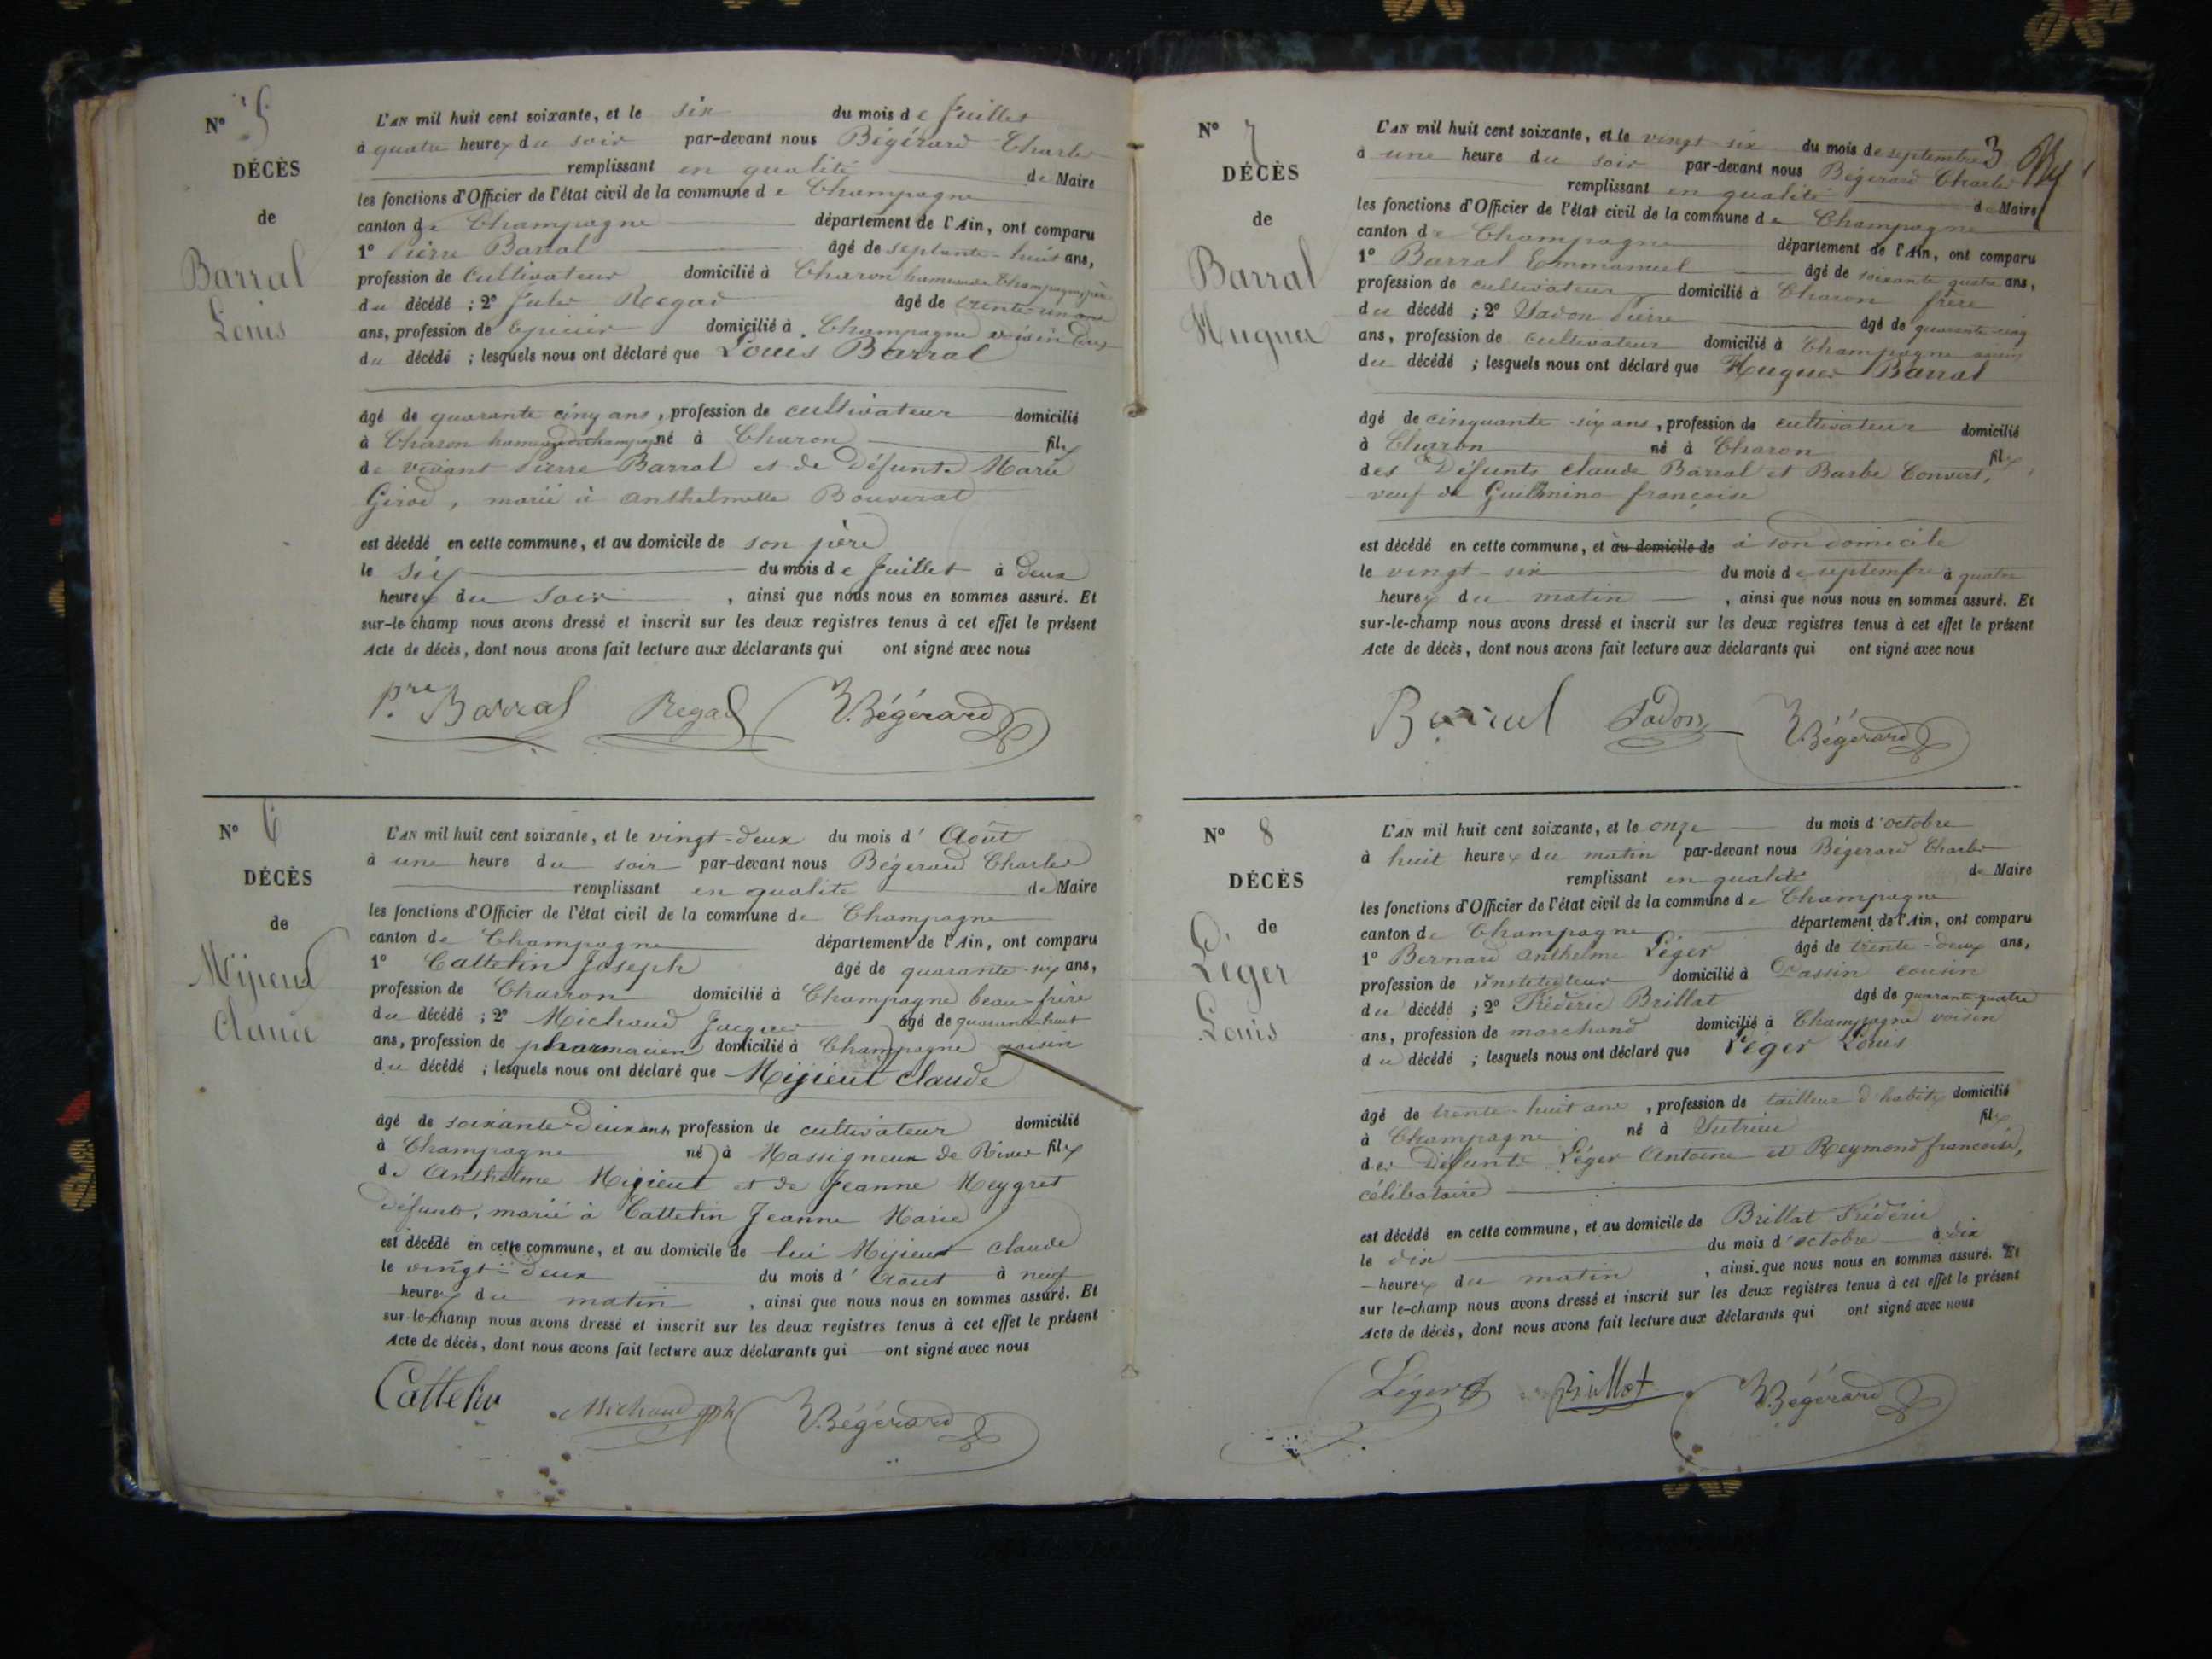 N° 5
DÉCÈS
de
Barral
Louis
L'AN mil huit cent soixante, et le six du mois de Juillet
à quatre heures du soir par-devant nous Bégérard Charles
remplissant en qualité de Maire
les fonctions d'Officier de l'état civil de la commune de Champagne
canton de Champagne département de l'Ain, ont comparu
1° Pierre Barral âgé de septante-huit ans,
profession de cultivateur domicilié à Charon hameau de Champagne, père
du décédé ; 2° Jules Regad âgé de trente-un ans
ans, profession de Epicier domicilié à Champagne voisin
du décédé ; lesquels nous ont déclaré que Louis Barral
âgé de quarante cinq ans, profession de cultivateur domicilié
à Charon hameau de champagne né à Charon fils
de vivant Pierre Barral et de défunte Marie
Girod, marié à Anthelmette Bouverat
est décédé en cette commune, et au domicile de son père
le six du mois de Juillet à deux
heures du soir, ainsi que nous nous en sommes assuré. Et
sur-le-champ nous avons dressé et inscrit sur les deux registres tenus à cet effet le présent
Acte de décès, dont nous avons fait lecture aux déclarants qui ont signé avec nous
Pre Barral Regad Bégérard
N° 6
DÉCÈS
de
Mijieux
Claude
L'AN mil huit cent soixante, et le vingt-deux du mois d'Août
à une heure du soir par-devant nous Bégérard Charles
remplissant en qualité de Maire
les fonctions d'Officier de l'état civil de la commune de Champagne
canton de Champagne département de l'Ain, ont comparu
1° Cattelin Joseph âgé de quarante-six ans,
profession de Charron domicilié à Champagne beau-frère
du décédé ; 2° Michaud Jacques âgé de quarante-huit
ans, profession de pharmacien domicilié à Champagne voisin
du décédé ; lesquels nous ont déclaré que Mijieux Claude
âgé de soixante-deux ans, profession de cultivateur domicilié
à Champagne né à Massigneux de Rives fils
de Anthelme Mijieux et de Jeanne Meygret
défunts, marié à Cattelin Jeanne Marie
est décédé en cette commune, et au domicile de lui Mijieux Claude
le vingt-deux du mois d'août à neuf
heures du matin, ainsi que nous nous en sommes assuré. Et
sur-le-champ nous avons dressé et inscrit sur les deux registres tenus à cet effet le présent
Acte de décès, dont nous avons fait lecture aux déclarants qui ont signé avec nous
Cattelin Michaud ph Bégérard
N° 7
DÉCÈS
de
Barral
Hugues
3
L'AN mil huit cent soixante, et le vingt six du mois de septembre
à une heure du soir par-devant nous Bégérard Charles
remplissant en qualité de Maire
les fonctions d'Officier de l'état civil de la commune de Champagne
canton de Champagne département de l'Ain, ont comparu
1° Barral Emmanuel âgé de soixante quatre ans,
profession de cultivateur domicilié à Charon frère
du décédé ; 2° Padon Pierre âgé de quarante-cinq
ans, profession de cultivateur domicilié à Champagne voisin
du décédé ; lesquels nous ont déclaré que Hugues Barral
âgé de cinquante-six ans, profession de cultivateur domicilié
à Charon né à Charon fils
des défunts Claude Barral et Barbe Convert,
veuf de françoise
est décédé en cette commune, et au domicile de à son domicile
le vingt-six du mois de septembre à quatre
heures du matin, ainsi que nous nous en sommes assuré. Et
sur-le-champ nous avons dressé et inscrit sur les deux registres tenus à cet effet le présent
Acte de décès, dont nous avons fait lecture aux déclarants qui ont signé avec nous
Barral Padon Bégérard
N° 8
DÉCÈS
de
Léger
Louis
L'AN mil huit cent soixante, et le onze du mois d'octobre
à huit heures du matin par-devant nous Bégérard Charles
remplissant en qualité de Maire
les fonctions d'Officier de l'état civil de la commune de Champagne
canton de Champagne département de l'Ain, ont comparu
1° Bernard Anthelme Léger âgé de trente-deux ans,
profession de Instituteur domicilié à Passin cousin
du décédé ; 2° Frédéric Brillat âgé de quarante-quatre
ans, profession de marchand domicilié à Champagne voisin
du décédé ; lesquels nous ont déclaré que Léger Louis
âgé de trente-huit ans, profession de tailleur d'habits domicilié
à Champagne né à Sutrieu fils
des défunts Léger Antoine et Reymond françoise,
célibataire
est décédé en cette commune, et au domicile de Brillat Frédéric
le dix du mois d'octobre à dix
heures du matin, ainsi que nous nous en sommes assuré. Et
sur le-champ nous avons dressé et inscrit sur les deux registres tenus à cet effet le présent
Acte de décès, dont nous avons fait lecture aux déclarants qui ont signé avec nous
Léger Brillat Bégérard